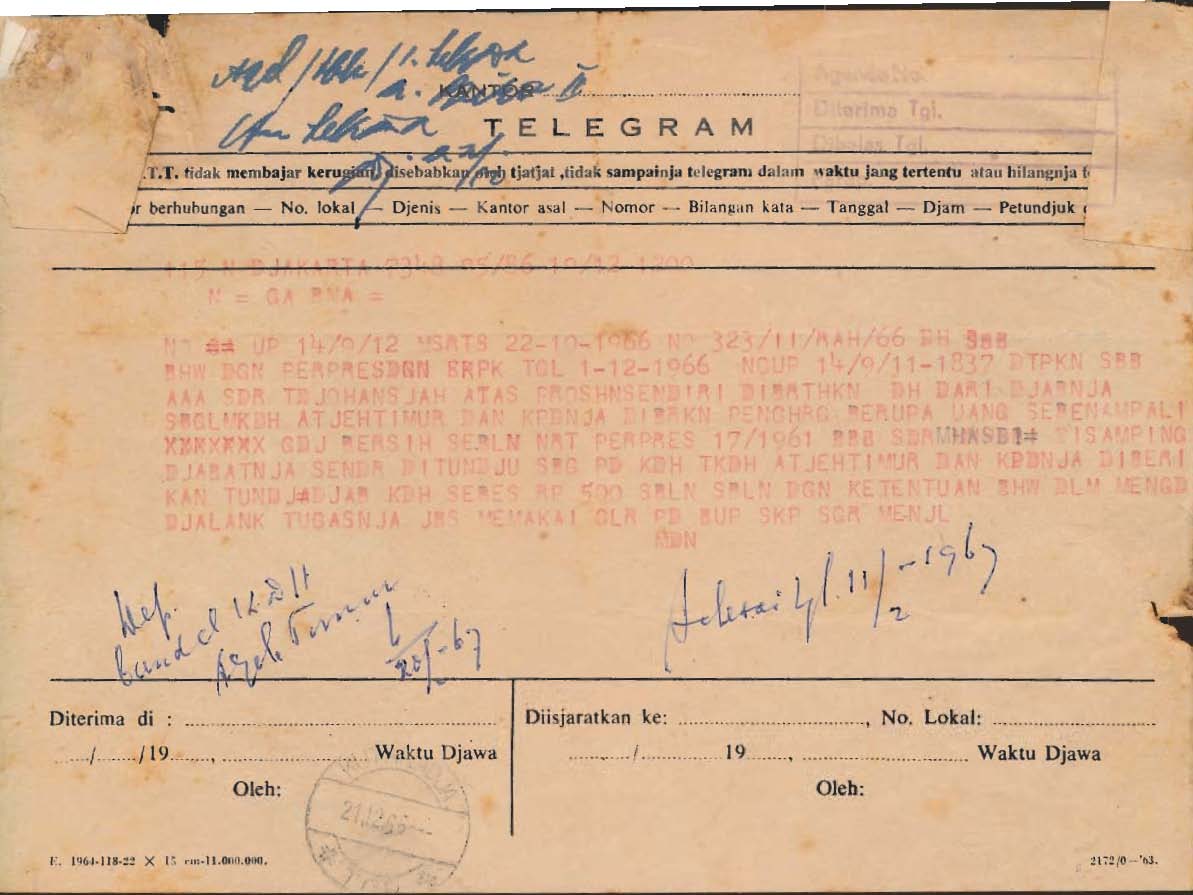 KANTOR
Agenda No.
Diterima Tgl.
TELEGRAM
Dibalas Tgl.
.T.T. tidak membajar kerugian, disebabkan oleh tjatjat ,tidak sampainja telegram dalam waktu jang tertentu atau hilangnja t
r berhubungan — No. lokal — Djenis — Kantor asal — Nomor — Bilangan kata — Tanggal — Djam — Petundjuk
115 N DJAKARTA 2348 85/86 19/12 1200
N = GA BNA =
NO UP 14/9/12 MSRTS 22-10-1966 NO 323/11/RAH/66 DH BBB
BHW DGN PERPRESDGN SRPK TGL 1-12-1966 NOUP 14/9/11-1837 DTPKN SBB
AAA SDR TDJOHANSJAH ATAS PROSHNSENDIRI DIBRTHKN DH DARI DJABNJA
SBGLMKDH ATJEHTIMUR DAN KPDNJA DIBRKN PENGHRG BERUPA UANG SEBENAMPALI
XXXXXXX GDJ BERSIH SEBLN NRT PERPRES 17/1961 BBB SDR DISAMPING
DJABATNJA SENDR DITUNDJU SBG PD KDH TKDH ATJEHTIMUR DAN KPDNJA DIBERI
KAN TUNDJ DJAB KDH SEBES RP 500 SBLN SBLN DGN KETENTUAN BHW DLM MENGD
DJALANK TUGASNJA JBS MEMAKAI GLR PD BUP SKP SGR MENJL
MDN
Selesai tgl. 11/2-1967
Diterima di :
Diisjaratkan ke: , No. Lokal:
/ /19 , Waktu Djawa
/ 19 , Waktu Djawa
Oleh:
Oleh:
21.12.66
E. 1964-118-22 X 15 cm-11.000.000.
2172/0—'63.